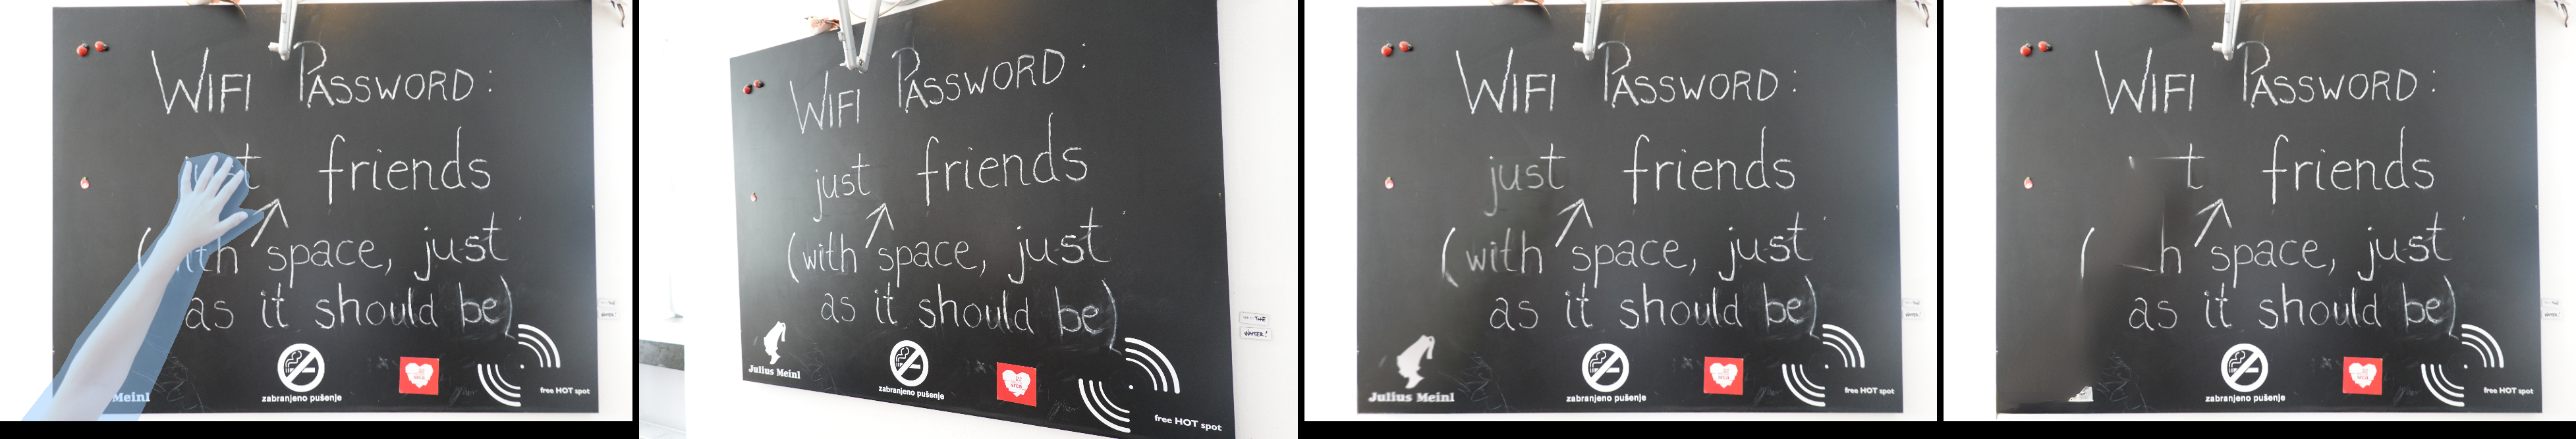 WIFI PASSWORD:
just friends
(with space, just
as it should be)
Meinl
zabranjeno pušenje
free HOT spot
WIFI PASSWORD:
just friends
(with space, just
as it should be)
Julius Meinl
zabranjeno pušenje
free HOT spot
THE
WINTER!
WIFI PASSWORD:
just friends
(with space, just
as it should be)
Julius Meinl
zabranjeno pušenje
free HOT spot
WIFI PASSWORD:
t friends
( h space, just
as it should be)
zabranjeno pušenje
free HOT spot